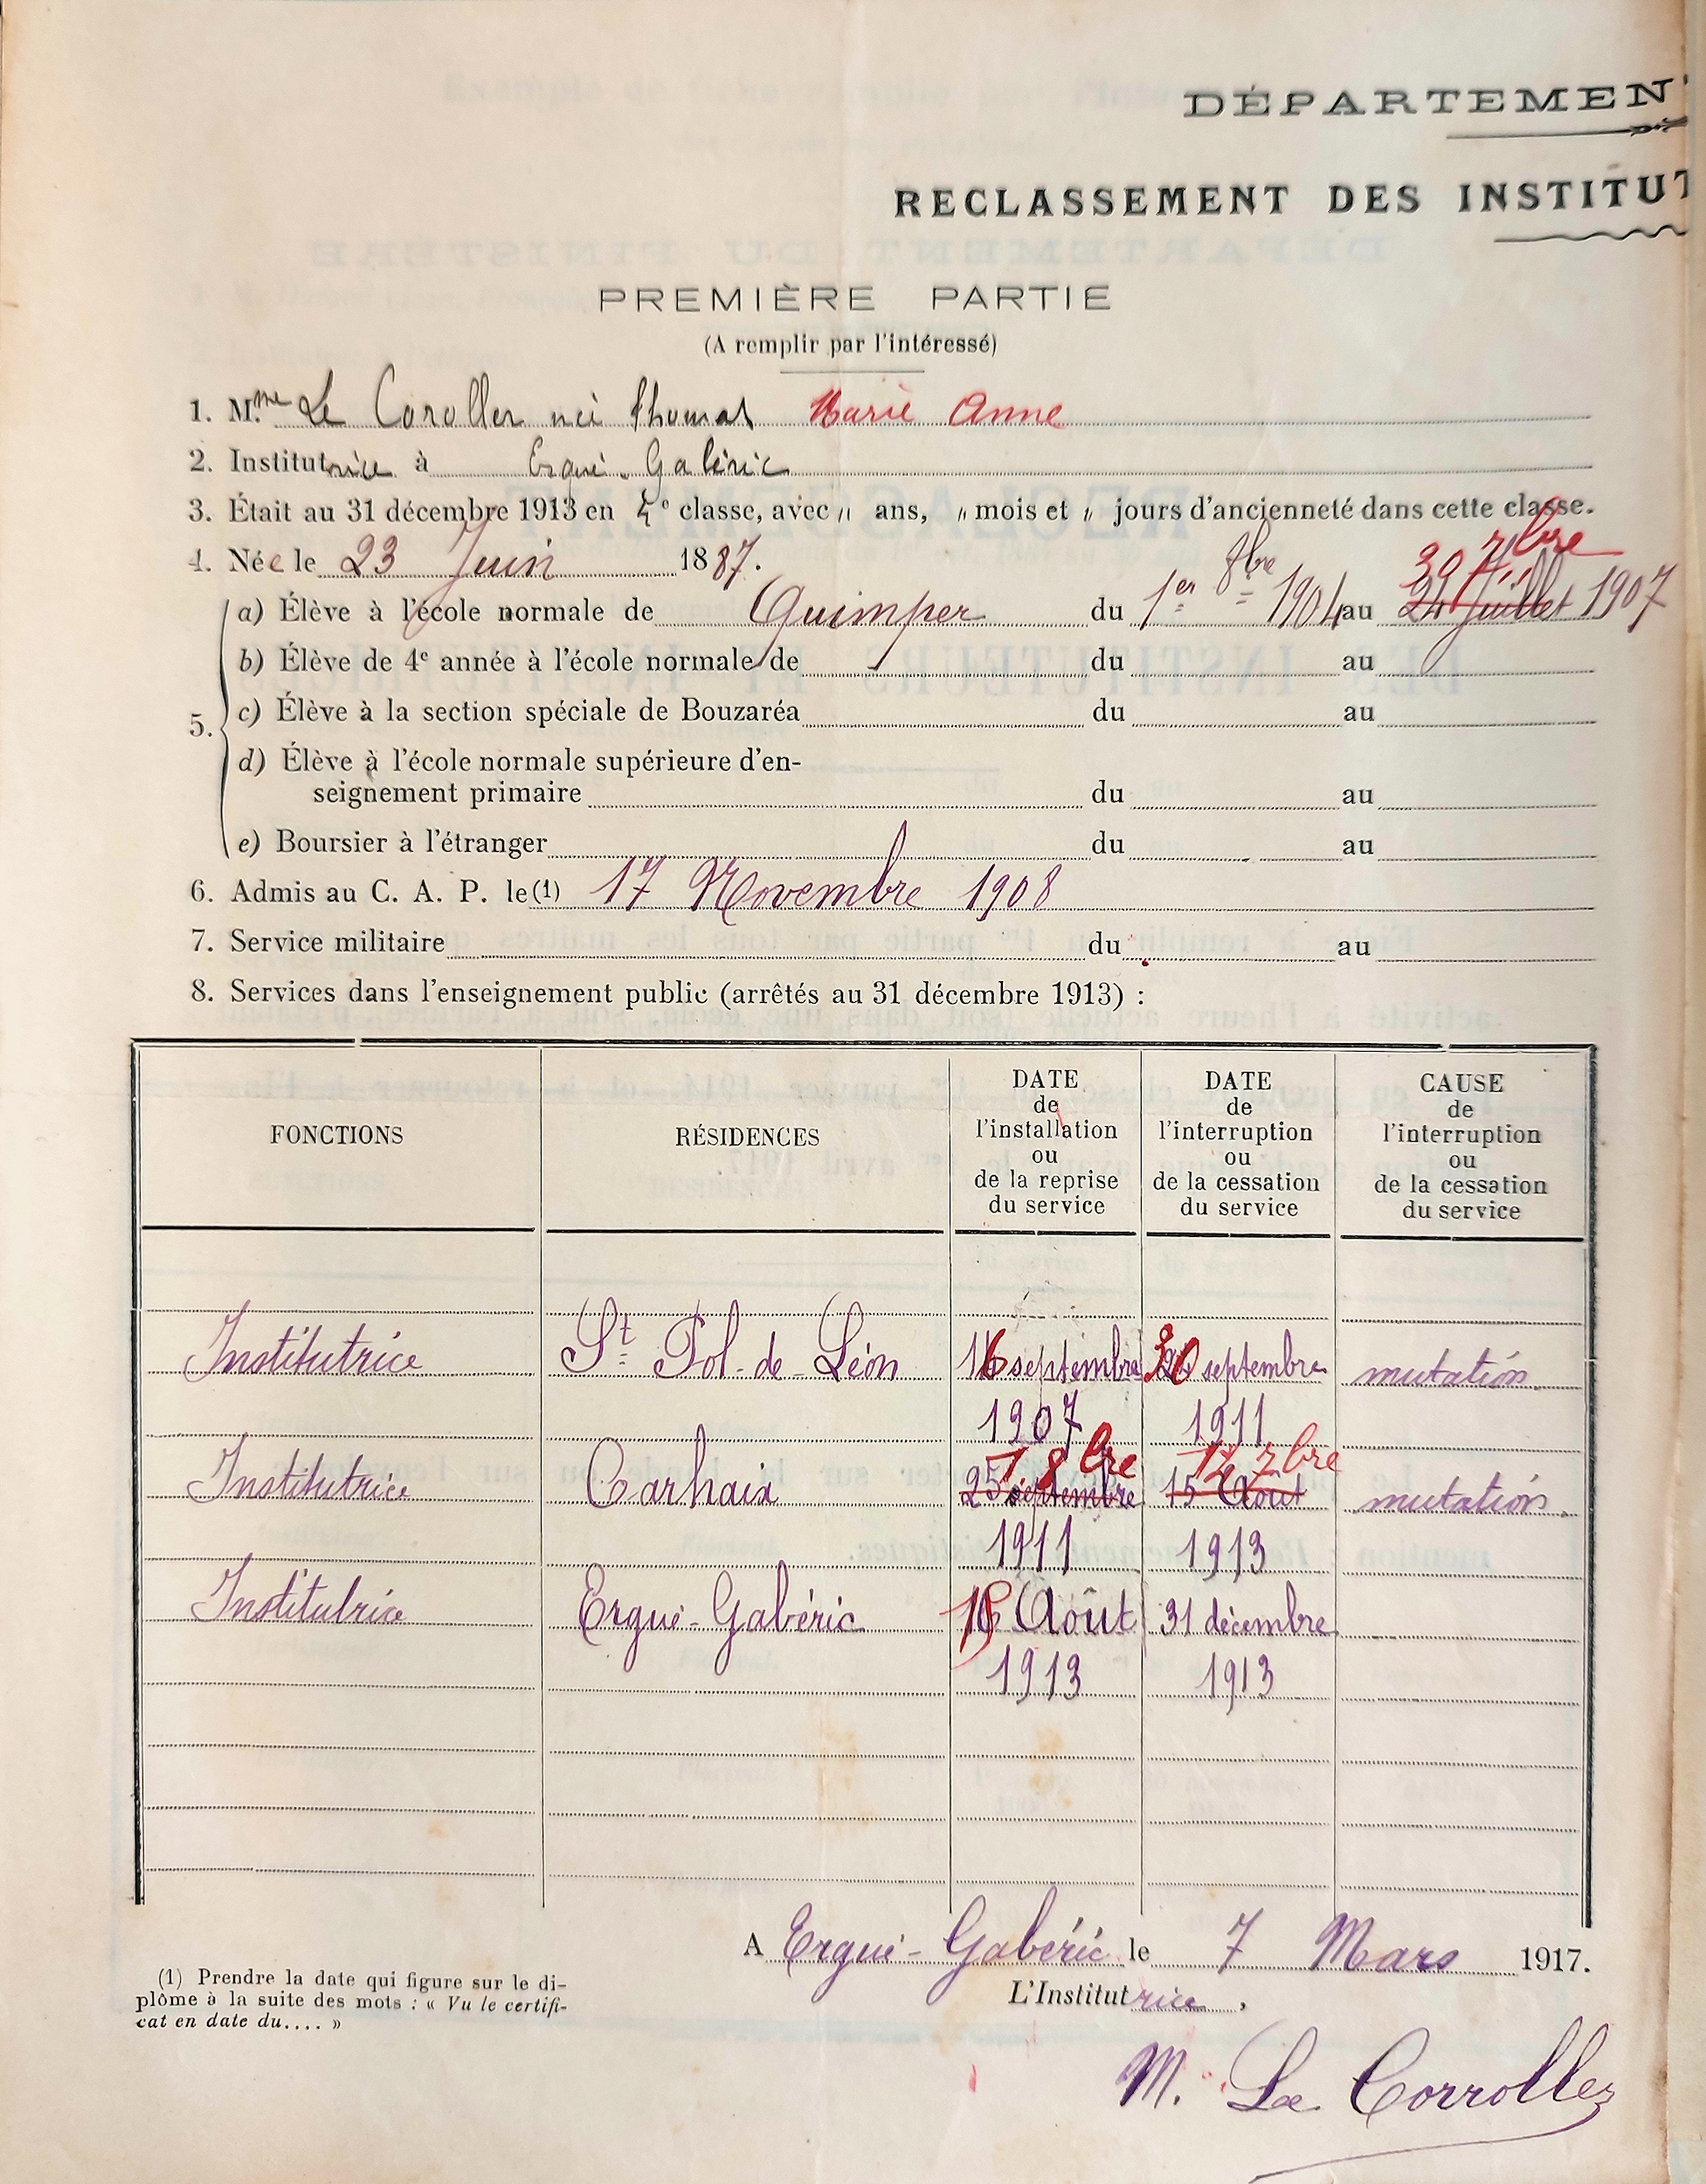 DÉPARTEMEN
RECLASSEMENT DES INSTITUT
PREMIÈRE PARTIE
(A remplir par l'intéressé)
1. Mme Le Coroller née Thomas Marie Anne
2. Institutrice à Ergué-Gabéric
3. Était au 31 décembre 1913 en 4e classe, avec " ans, " mois et " jours d'ancienneté dans cette classe.
4. Née le 23 Juin 1887.
30 7bre
5. a) Élève à l'école normale de Quimper du 1er 8bre 1904 au 24 Juillet 1907
b) Élève de 4e année à l'école normale de du au
c) Élève à la section spéciale de Bouzaréa du au
d) Élève à l'école normale supérieure d'en-
seignement primaire du au
e) Boursier à l'étranger du au
6. Admis au C. A. P. le (1) 17 Novembre 1908
7. Service militaire du au
8. Services dans l'enseignement public (arrêtés au 31 décembre 1913) :
FONCTIONS
RÉSIDENCES
DATE
de
l'installation
ou
de la reprise
du service
DATE
de
l'interruption
ou
de la cessation
du service
CAUSE
de
l'interruption
ou
de la cessation
du service
Institutrice St Pol-de-Léon 16 septembre 30 septembre mutation
1907 1911
1 8bre 12 7bre
Institutrice Carhaix 25 septembre 15 Août mutation
1911 1913
Institutrice Ergué-Gabéric Août 31 décembre
1913 1913
A Ergué-Gabéric le 7 Mars 1917.
L'Institutrice,
(1) Prendre la date qui figure sur le di-
plôme à la suite des mots : « Vu le certifi-
cat en date du.... »
M. Le Corroller